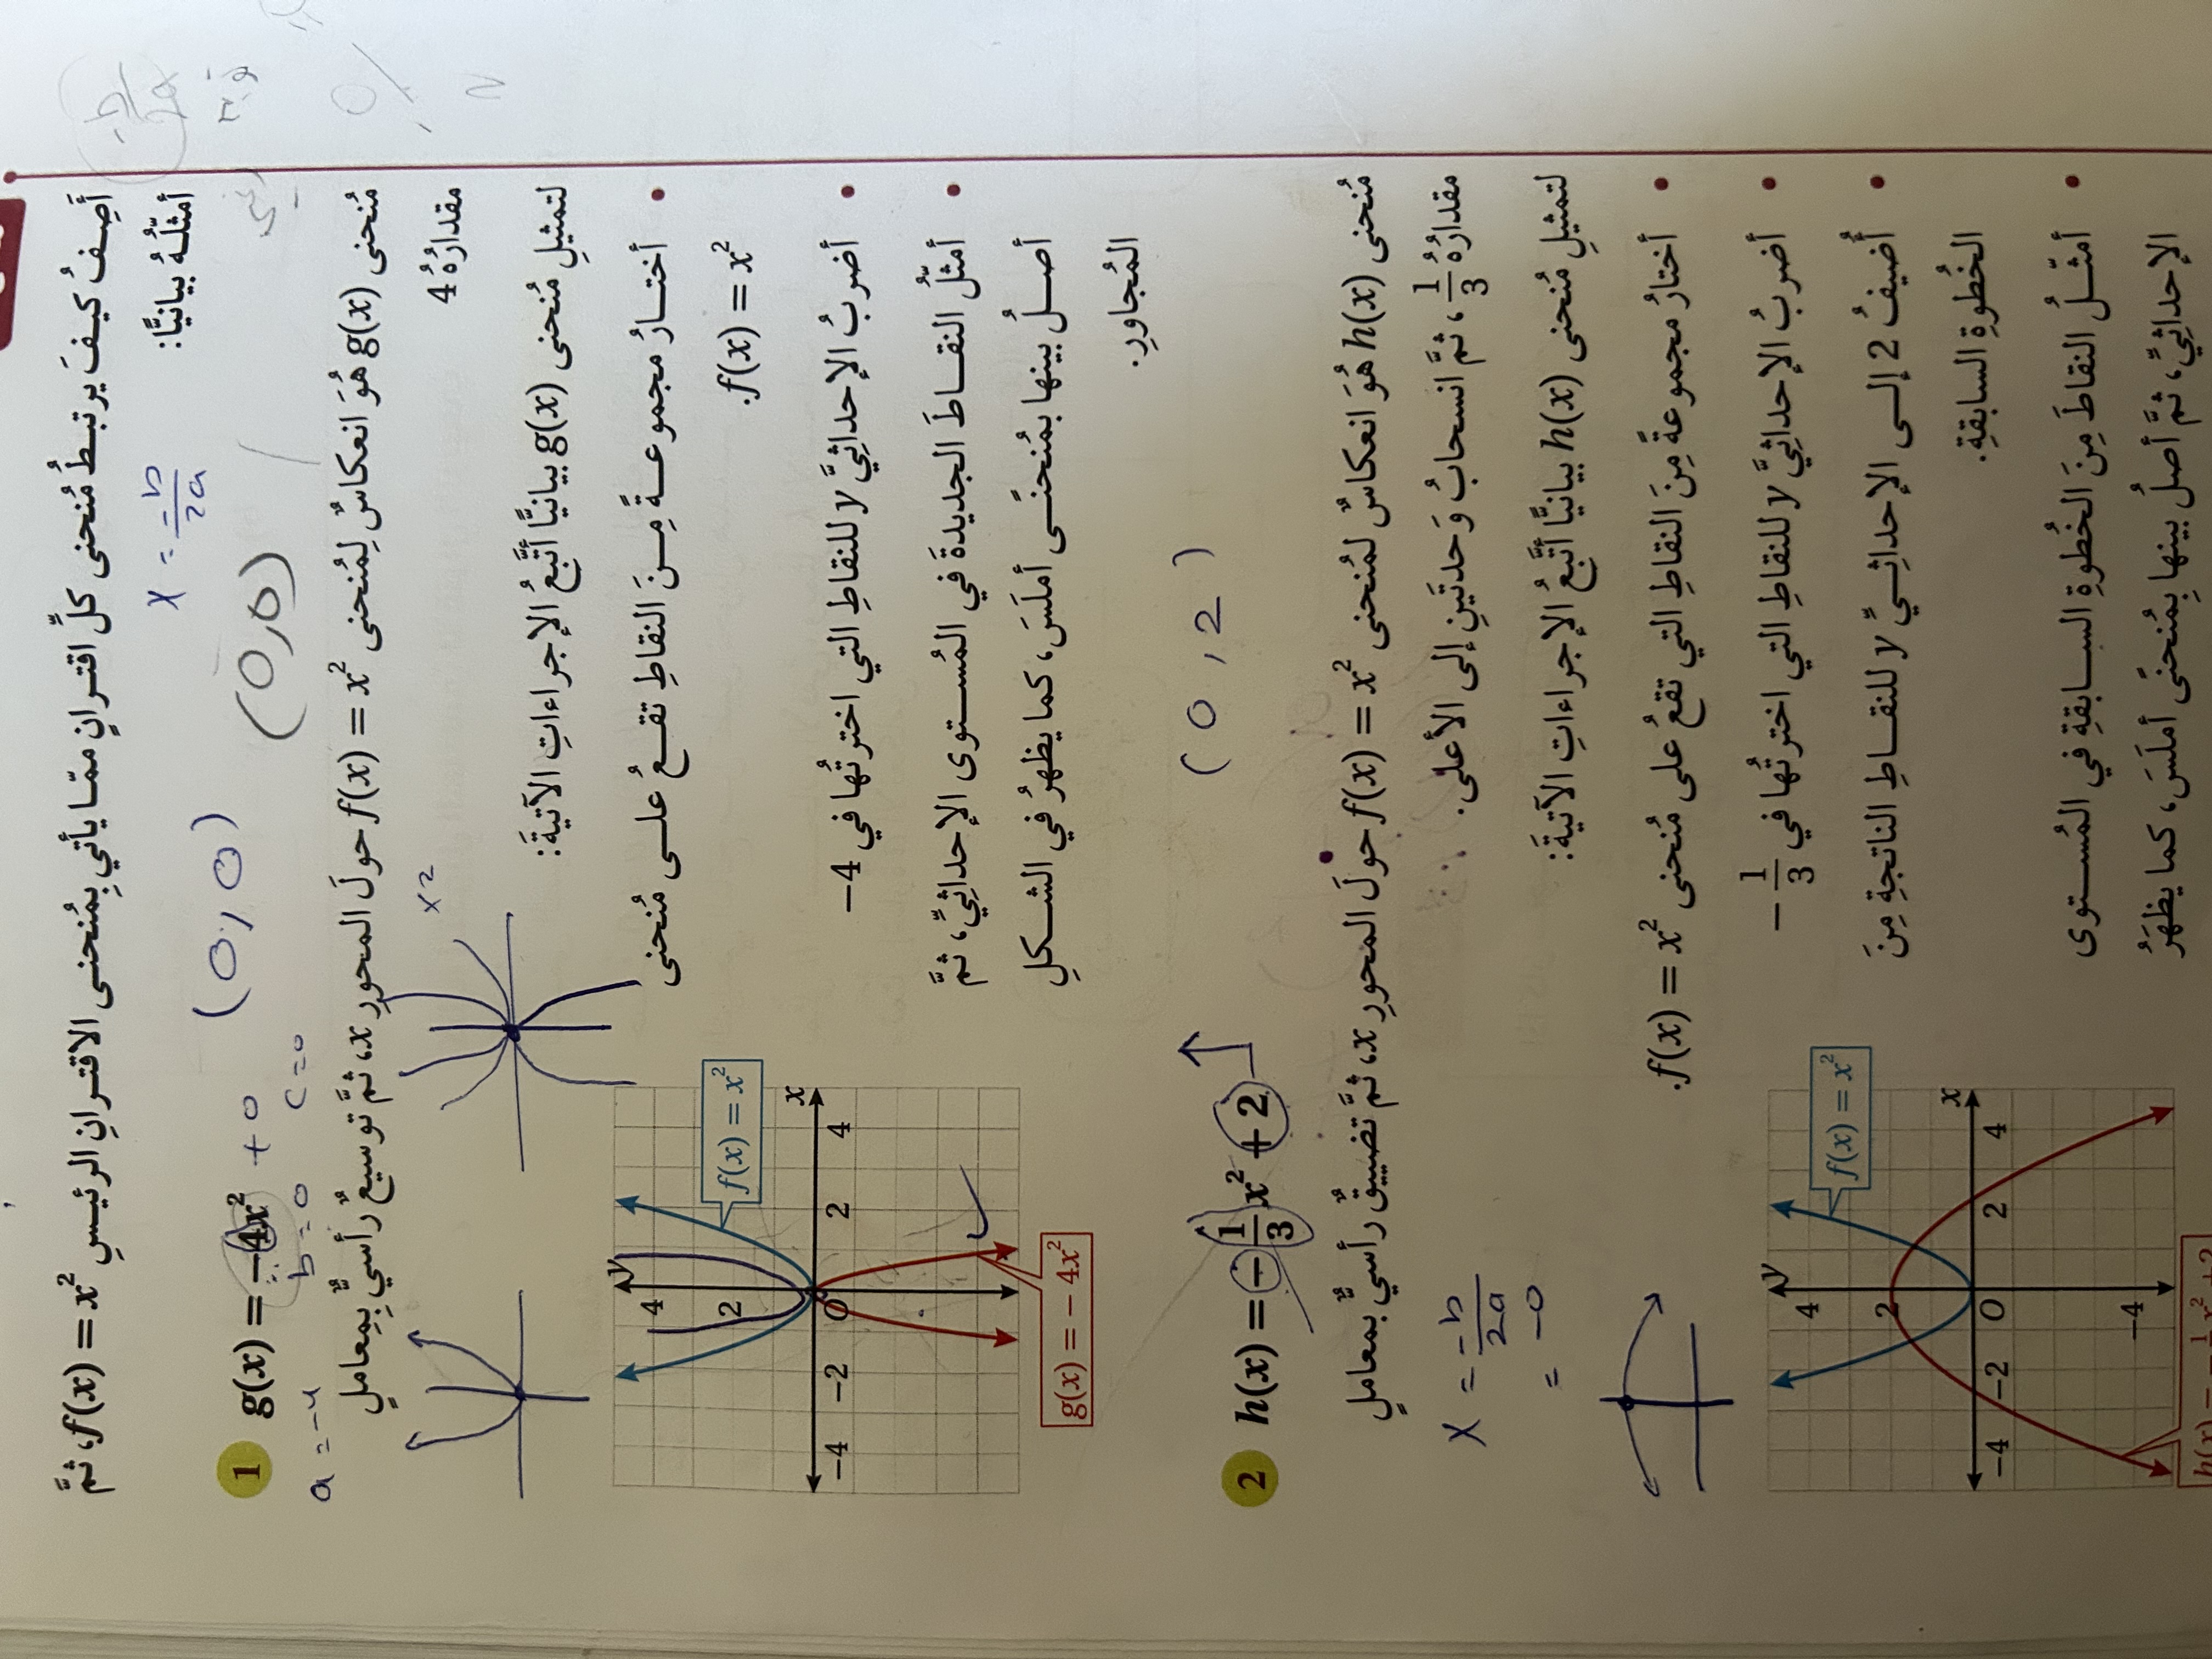 أَصِفُ كيفَ يرتبطُ مُنحنى كلِّ اقترانٍ ممّا يأتي بِمُنحنى الاقترانِ الرئيسِ f(x) = x²، ثمَّ
أمثّلُهُ بيانيًّا:
x = -b/2a
1 g(x) = −4x² + 0 (0,0) (0,0)
a = -4 b = 0 c = 0
مُنحنى g(x) هُوَ انعكاسٌ لِمُنحنى f(x) = x² حولَ المحورِ x، ثمَّ توسيعٌ رأسيٌّ بِمِعاملٍ
مقدارُهُ 4
x²
لتمثيلِ مُنحنى g(x) بيانيًّا أتَّبعُ الإجراءاتِ الآتيةَ:
• أختارُ مجموعةً مِنَ النقاطِ تقعُ على مُنحنى
f(x) = x².
• أضربُ الإحداثيَّ y للنقاطِ التي اخترتُها في −4
• أمثّلُ النقاطَ الجديدةَ في المُستوى الإحداثيِّ، ثمَّ
أصلُ بينها بمُنحنًى أملَسَ، كما يظهرُ في الشكلِ
المُجاورِ.
y
4
2
f(x) = x²
−4 −2 O 2 4 x
g(x) = − 4x²
(0, 2)
2 h(x) = −1/3 x² + 2
مُنحنى h(x) هُوَ انعكاسٌ لمُنحنى f(x) = x² حولَ المحورِ x، ثمَّ تضييقٌ رأسيٌّ بمعاملٍ
مقدارُهُ 1/3، ثمَّ انسحابُ وَحدتَينِ إلى الأعلى.
x = -b/2a
= -0
لتمثيلِ مُنحنى h(x) بيانيًّا أتَّبعُ الإجراءاتِ الآتيةَ:
• أختارُ مجموعةً مِنَ النقاطِ التي تقعُ على مُنحنى f(x) = x².
• أضربُ الإحداثيَّ y للنقاطِ التي اخترتُها في −1/3
• أُضيفُ 2 إلى الإحداثيِّ y للنقاطِ الناتجةِ مِنَ
الخُطوةِ السابقةِ.
• أمثّلُ النقاطَ مِنَ الخُطوةِ السابقةِ في المُستوى
الإحداثيِّ، ثمَّ أصلُ بينها بِمُنحنًى أملَسَ، كما يظهَرُ
y
4
2
f(x) = x²
−4 −2 O 2 4 x
−4
h(x) = −1/3 x² + 2